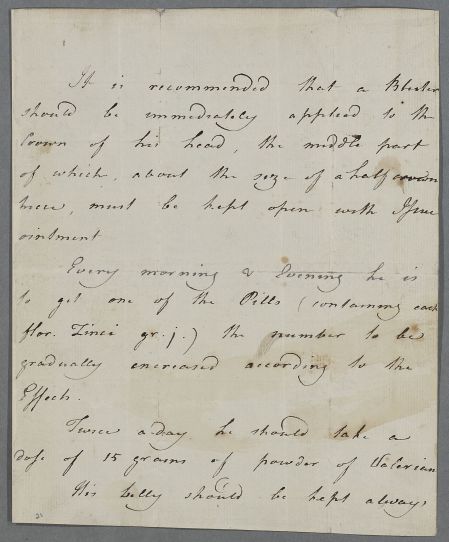 It is recommended that a Blister
should be immediately applied to the
Crown of his head, the middle part
of which, about the size of a half crown
piece, must be kept open with Issue
ointment
Every morning & Evening he is
to get one of the Pills (containing each
flor. Zinci gr. j.) the number to be
gradually encreased according to the
Effects.
Twice a day he should take a
dose of 15 grains of powder of Valerian
His belly should be kept always